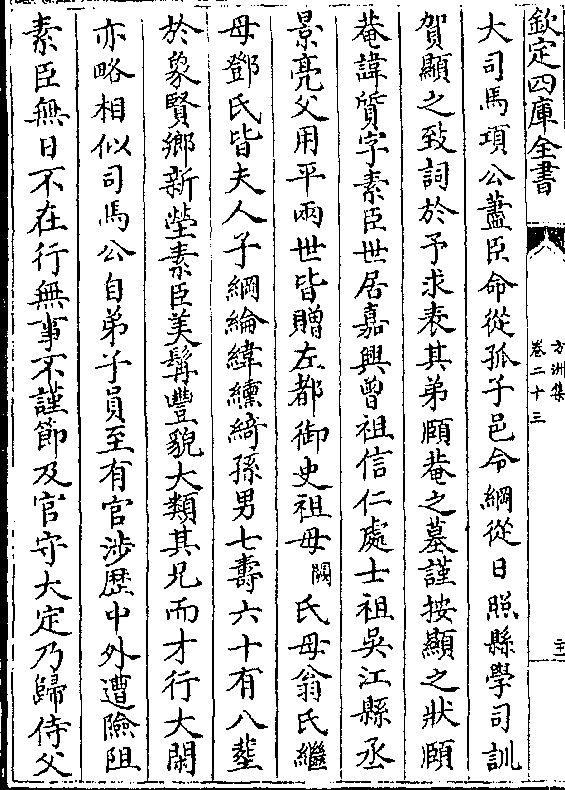 欽定四庫全書
方洲集
卷二十三
大司馬項公藎臣命從孤子邑令綱從日照縣學司訓
賀顯之致詞於予求表其弟頤菴之墓謹按顯之狀頤
菴諱質字素臣世居嘉興曾祖信仁處士祖吳江縣丞
景亮父用平兩世皆贈左都御史祖母闕氏母翁氏繼
母鄧氏皆夫人子綱綸緯纁綺孫男七壽六十有八塟
於象賢鄉新塋素臣美髯豐貌大類其兄而才行大閑
亦略相似司馬公自弟子員至有官涉歴中外遭險阻
素臣無日不在行無事不謹節及官守大定乃歸侍父